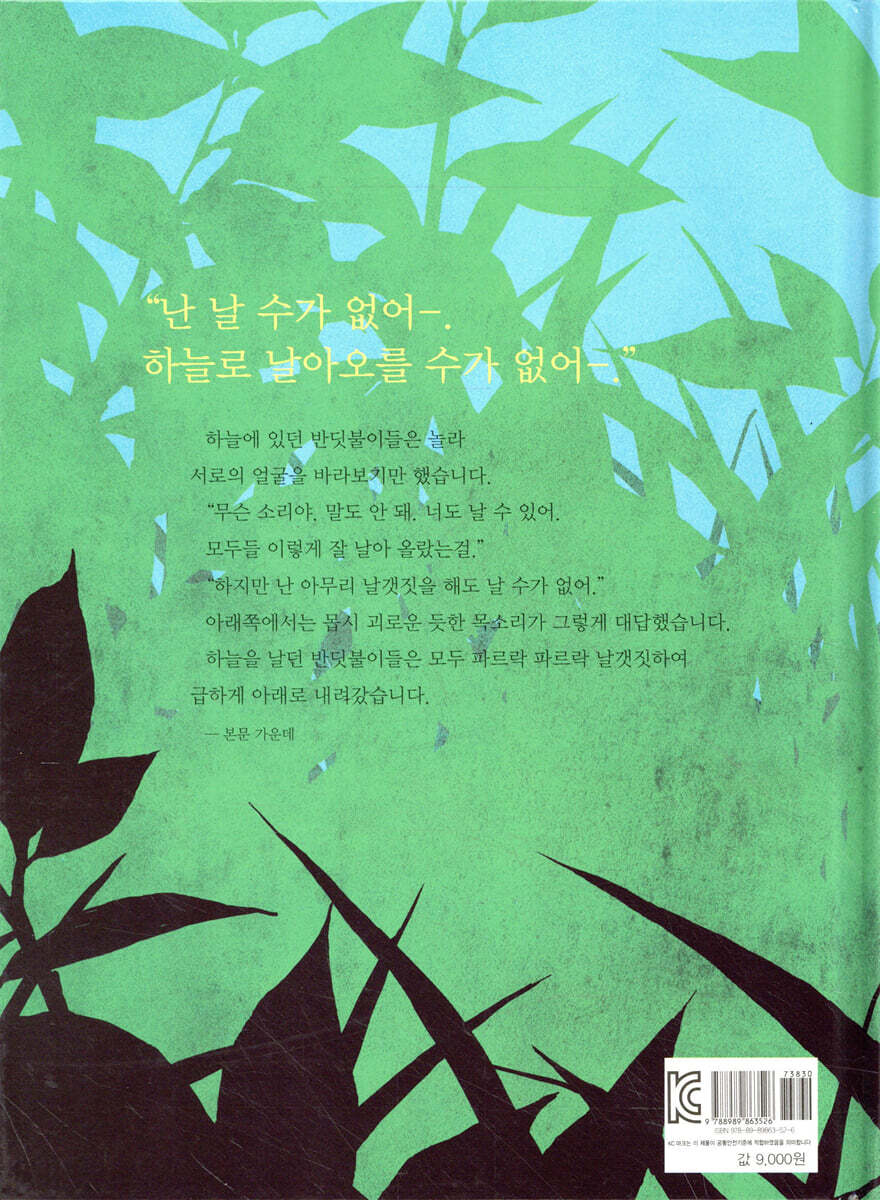 “난 날 수가 없어–.
하늘로 날아오를 수가 없어–.”
하늘에 있던 반딧불이들은 놀라
서로의 얼굴을 바라보기만 했습니다.
“무슨 소리야, 말도 안 돼. 너도 날 수 있어.
모두들 이렇게 잘 날아 올랐는걸.”
“하지만 난 아무리 날갯짓을 해도 날 수가 없어.”
아래쪽에서는 몹시 괴로운 듯한 목소리가 그렇게 대답했습니다.
하늘을 날던 반딧불이들은 모두 파르락 파르락 날갯짓하여
급하게 아래로 내려갔습니다.
— 본문 가운데
73830
KC
9 788989 863526
ISBN 978-89-89863-52-6
KC 마크는 이 제품이 공통안전기준에 적합하였음을 의미합니다
값 9,000원